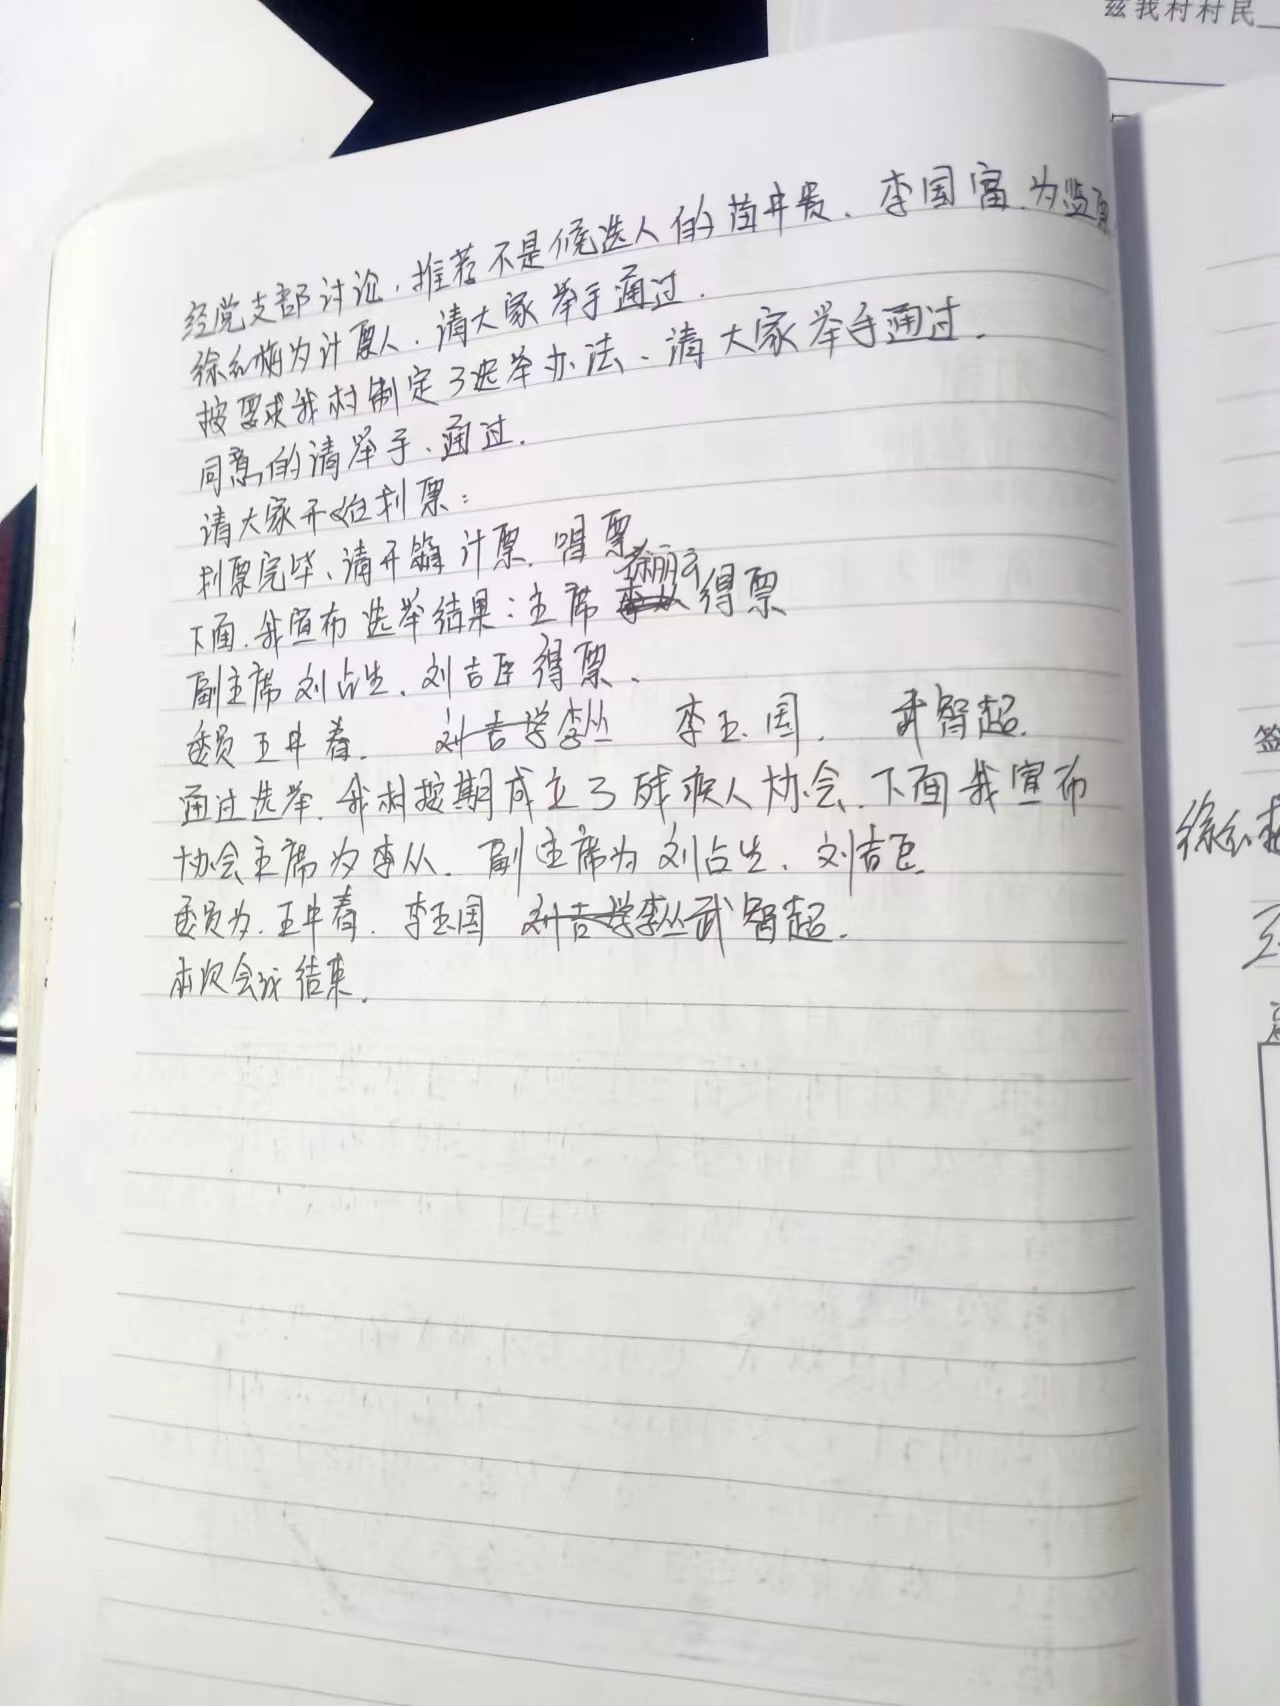 兹我村村民
经党支部讨论,推荐不是候选人的苗井贵、李国富、为监票
徐红梅为计票人,请大家举手通过.
按要求我村制定了选举办法、请大家举手通过.
同意的请举手、通过.
请大家开始划票:
划票完毕、请开箱计票、唱票
下面、我宣布选举结果:主席 得票
副主席刘占生、刘吉臣得票、
委员王中春. 刘吉学李丛 李玉国. 武智超.
通过选举、我村按期成立了残疾人协会、下面我宣布
协会主席为李从. 副主席为刘占生、刘吉臣.
委员为.王中春.李玉国 刘吉学李丛武智超.
本次会议结束.
签